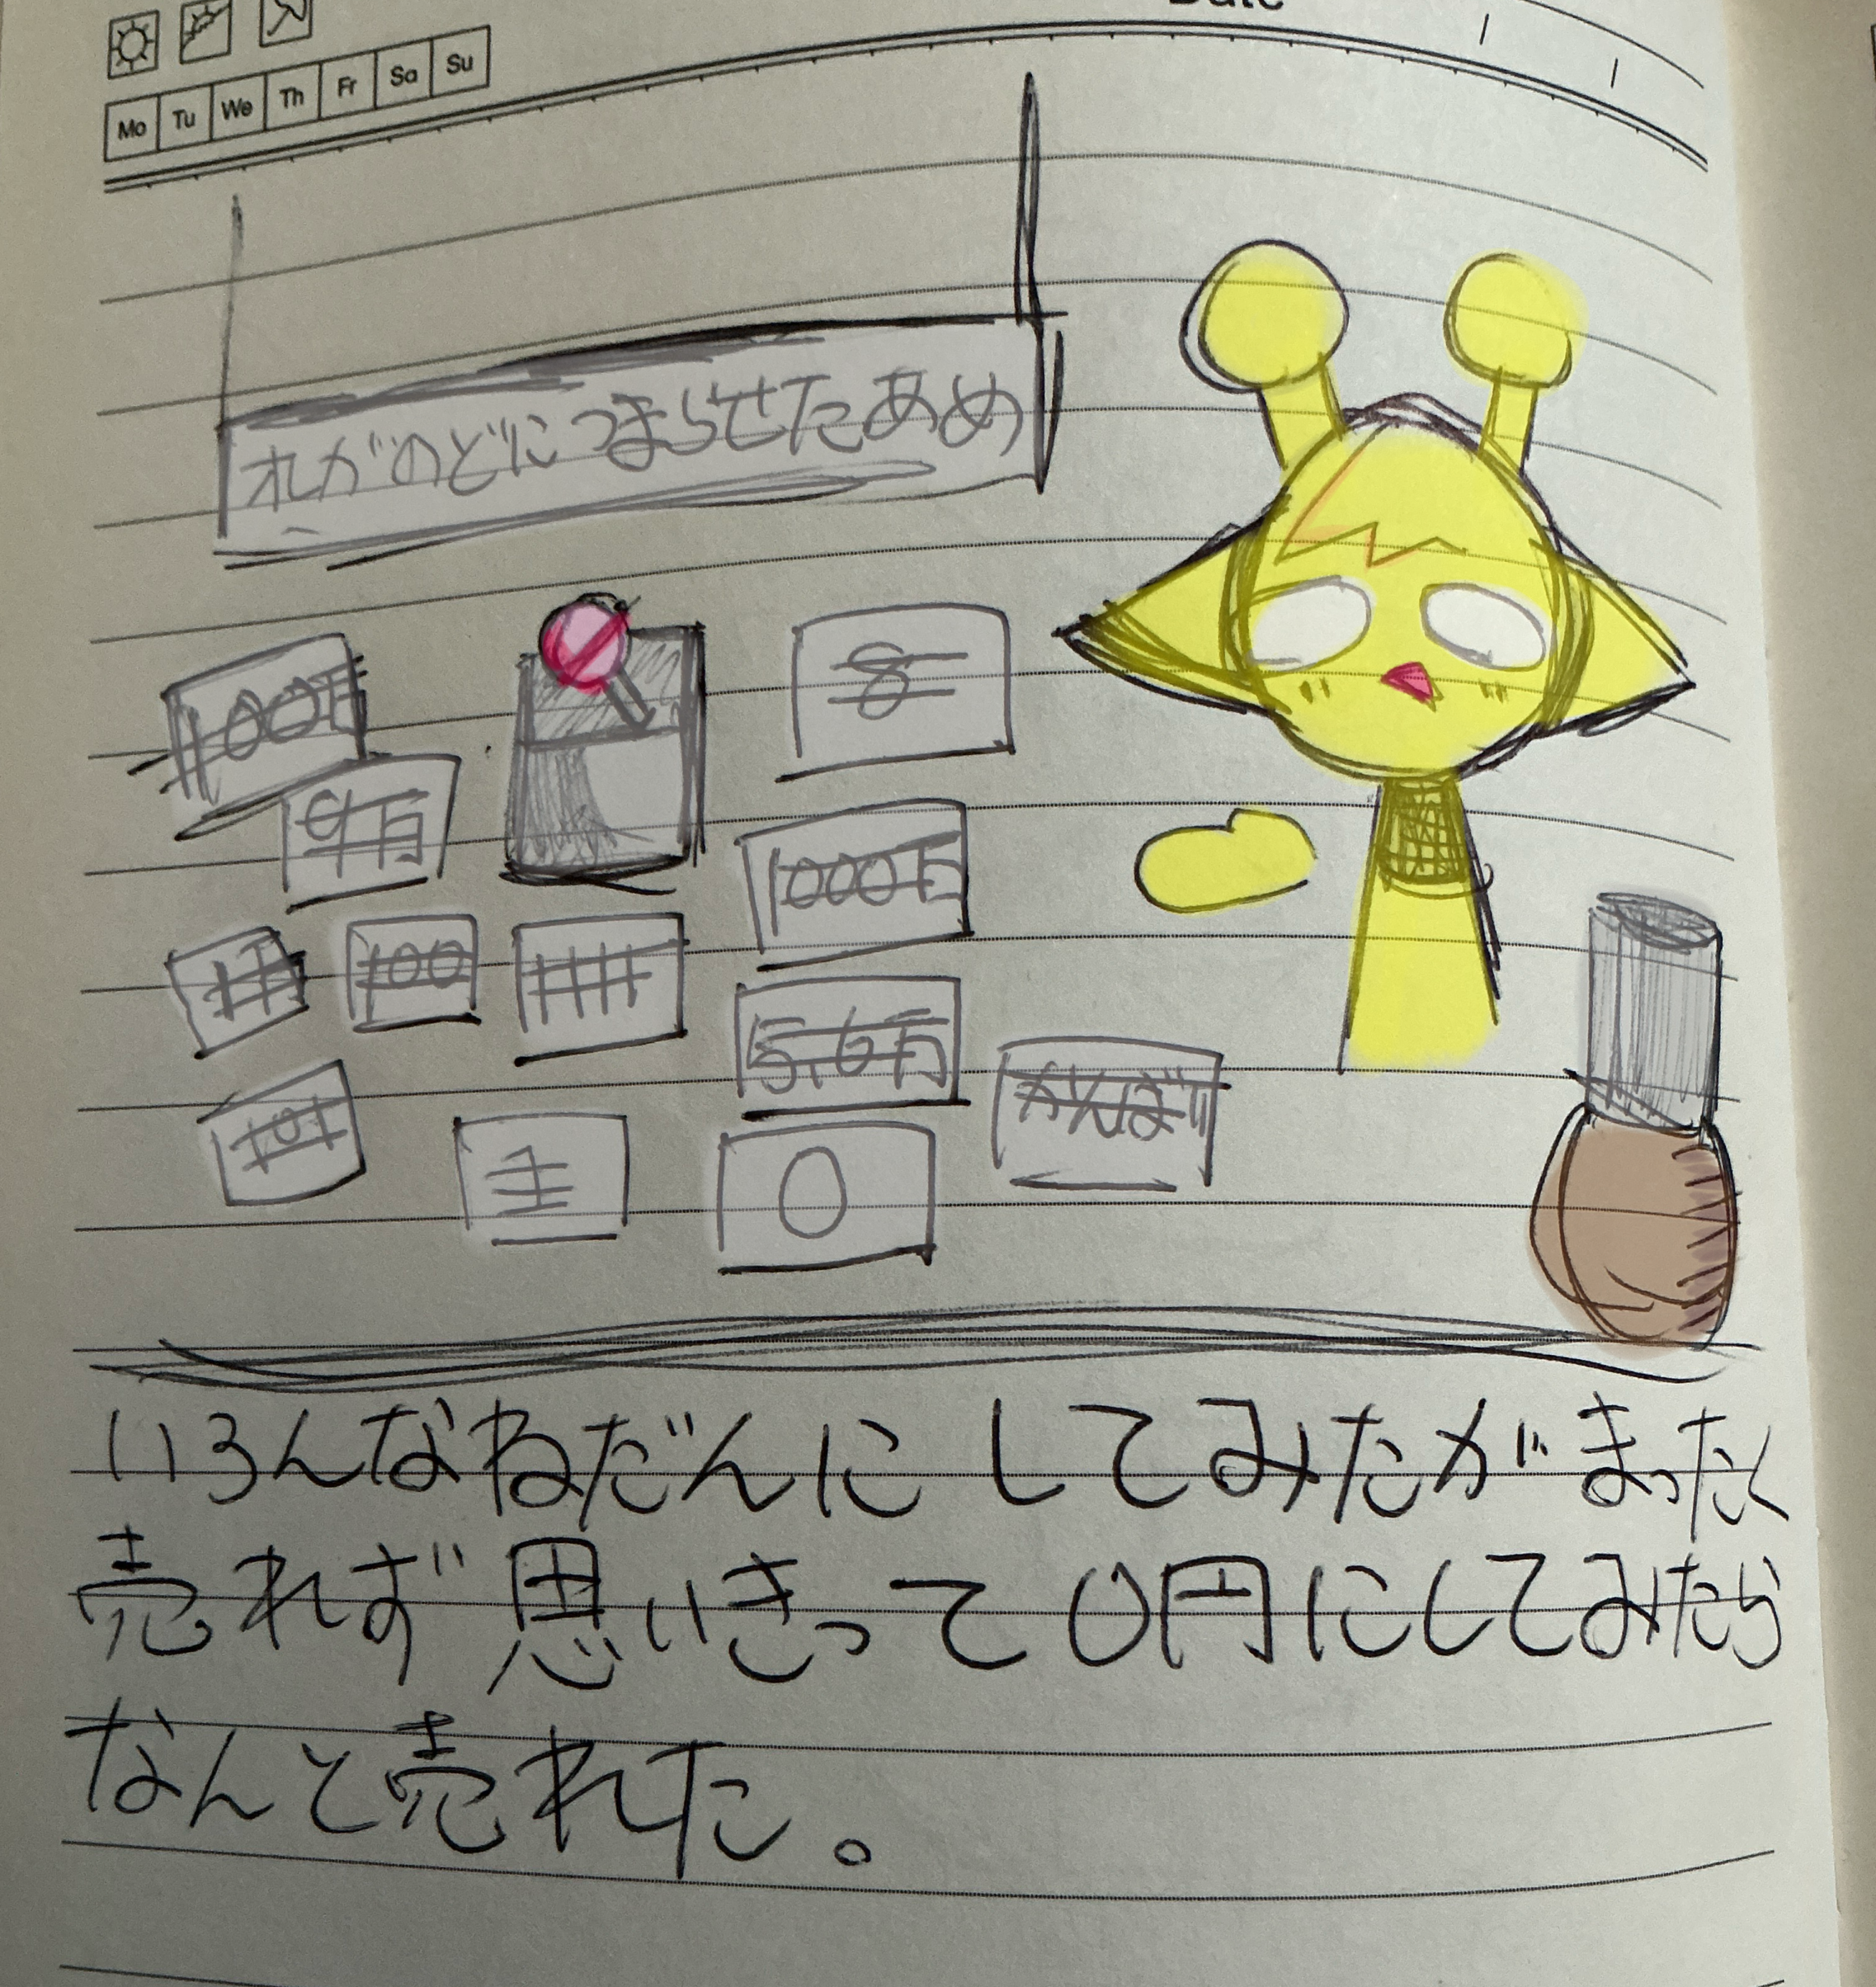 Mo Tu We Th Fr Sa Su
オレがのどにつまらせたあめ
100万
8
9万
1000万
100
5.6万
がんばり
101
0
いろんなねだんにしてみたがまったく
売れず思いきって0円にしてみたら
なんと売れた。